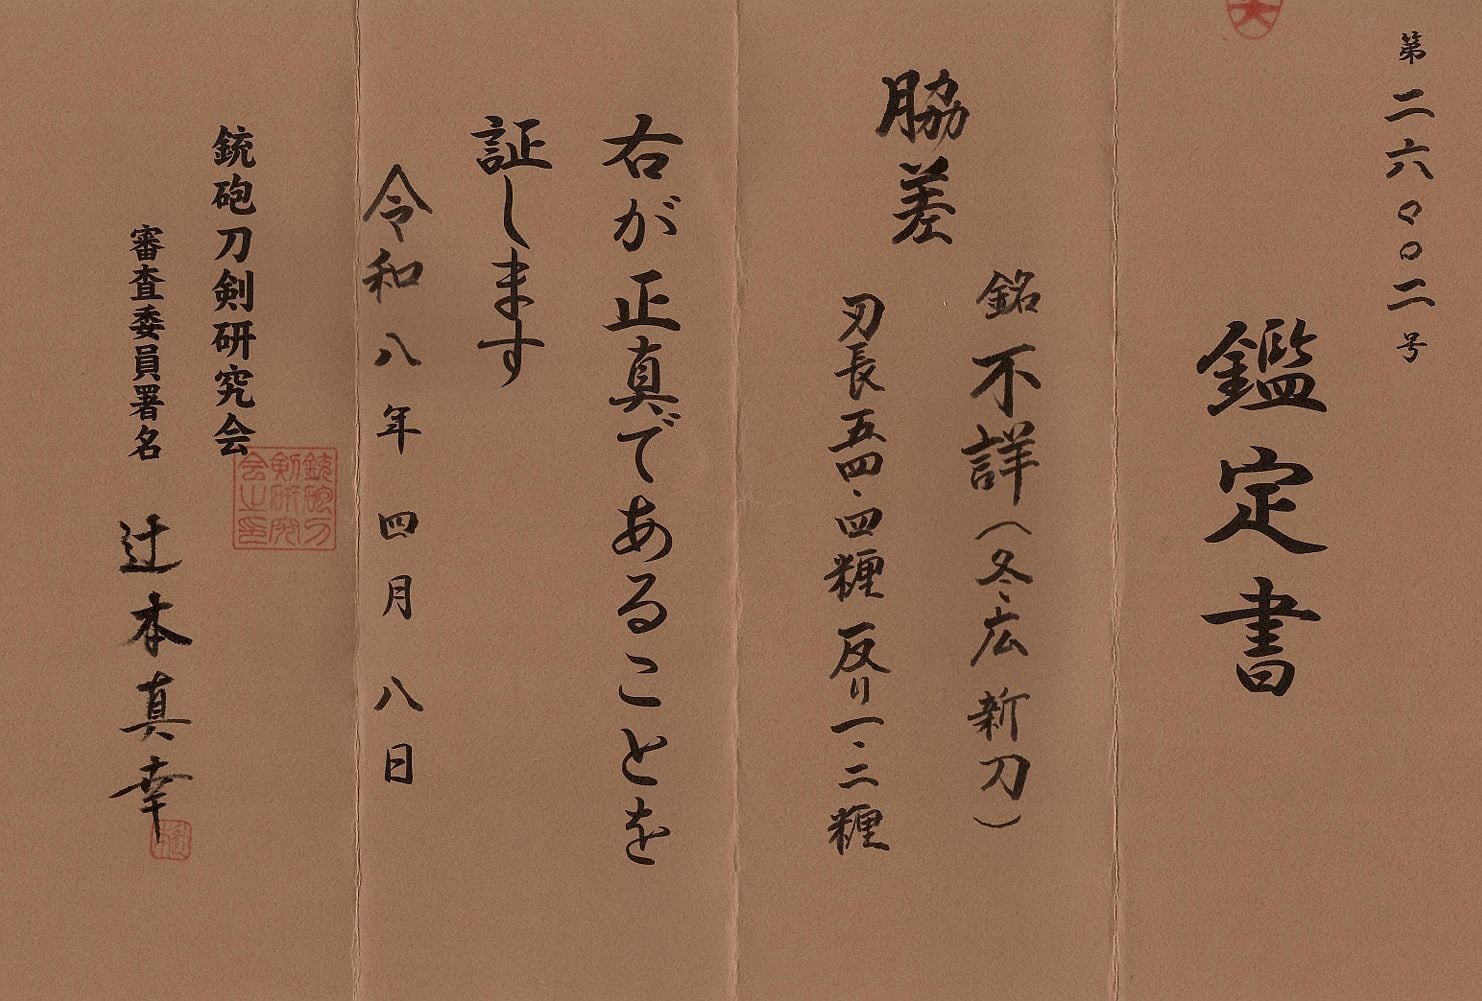 第二六〇〇二号
鑑定書
脇差
銘 不詳(冬広 新刀)
刃長五四.四糎 反り一.二糎
右が正真であることを
証します
令和八年四月八日
銃砲刀剣研究会
銃砲刀剣研究会之印
審査委員署名 辻本真幸